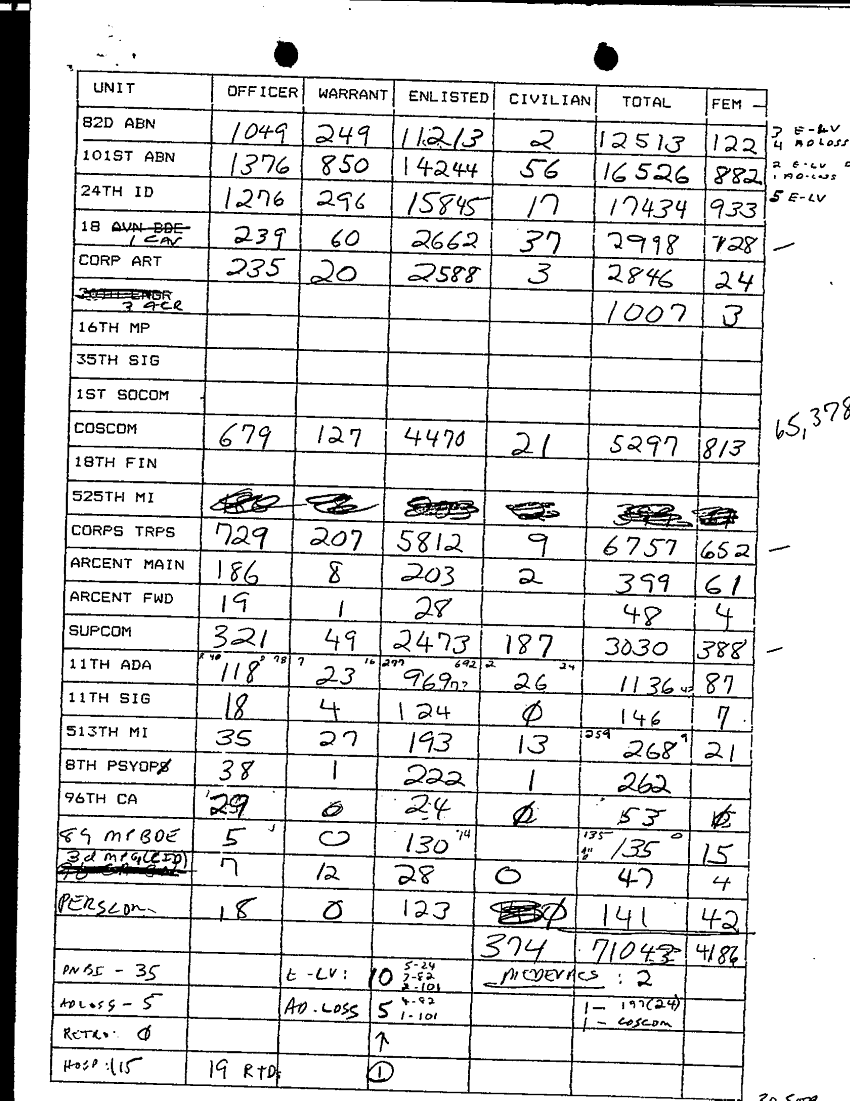 UNIT OFFICER WARRANT ENLISTED CIVILIAN TOTAL FEM
82D ABN 1049 249 11213 2 12513 122 3 E-LV
4 AD LOSS
101ST ABN 1376 850 14244 56 16526 882 2 E-LV
1 AD-LOSS
24TH ID 1276 296 15845 17 17434 933 5 E-LV
18 AVN BDE 239 60 2662 37 2998 128 —
1 CAV
CORP ART 235 20 2588 3 2846 24
20TH ENGR 1007 3
3 ACR
16TH MP
35TH SIG
1ST SOCOM
65,378
COSCOM 679 127 4470 21 5297 813
18TH FIN
525TH MI
CORPS TRPS 729 207 5812 9 6757 652 —
ARCENT MAIN 186 8 203 2 399 61
ARCENT FWD 19 1 28 48 4
SUPCOM 321 49 2473 187 3030 388 —
11TH ADA 118 78 7 23 16 277 969 692 2 26 24 1136 87
11TH SIG 18 4 124 Ø 146 7
513TH MI 35 27 193 13 259 268 9 21
8TH PSYOPS 38 1 222 1 262
96TH CA 29 0 24 Ø 53
89 MP BDE 5 0 130 14 135 135 0 15
3d MPG(CID) 7 12 28 0 47 4
PERSCOM 18 0 123 Ø 141 42
374 71043 4186
DNBI - 35 E-LV: 10 5-24 MEDEVACS : 2
7-82
2-101
AD LOSS - 5 AD.LOSS 5 4-82 1- 197(24)
1-101 1- COSCOM
RETRO: Ø ↑
HOSP: 115 19 RTD 1